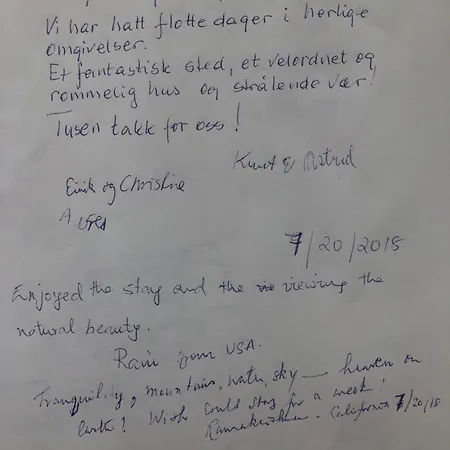 Vi har hatt flotte dager i herlige
omgivelser.
Et fantastisk sted, et velordnet og
rommelig hus og strålende vær!
Tusen takk for oss!
Knut & Astrid
Eirik og Christine
7/20/2018
Enjoyed the stay and the viewing the
natural beauty.
from USA.
Tranquility, mountains, water, sky — heaven on
Earth! Wish could stay for a week!
Ramakrishna. California 7/20/18